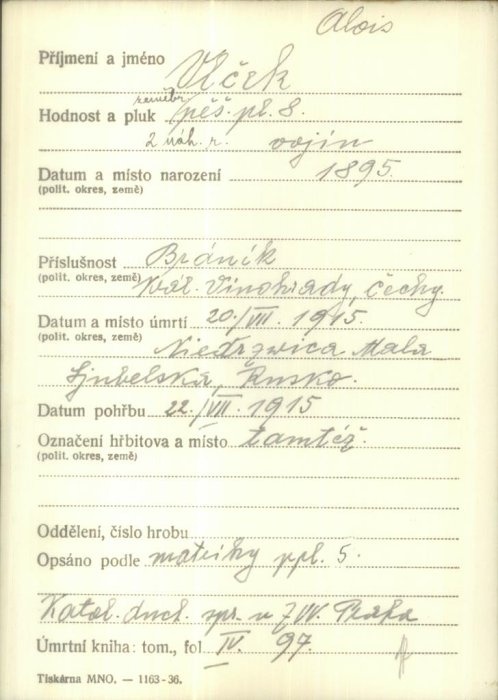 Alois
Příjmení a jméno Vlček
zeměbr.
Hodnost a pluk pěš. pl. 8.
2 náh. r. vojín
Datum a místo narození 1895.
(polit. okres, země)
Příslušnost Bráník
(polit. okres, země) Král. Vinohrady, Čechy.
Datum a místo úmrtí 20./VII. 1915.
(polit. okres, země) Niedrzwica Mala
Ljubelska, Rusko.
Datum pohřbu 22./VII. 1915
Označení hřbitova a místo tamtéž.
(polit. okres, země)
Oddělení, číslo hrobu
Opsáno podle matriky ppl. 5.
Katol. duch. spr. u ZVV. Praha
Úmrtní kniha: tom., fol. IV. 97.
Tiskárna MNO. — 1163-36.